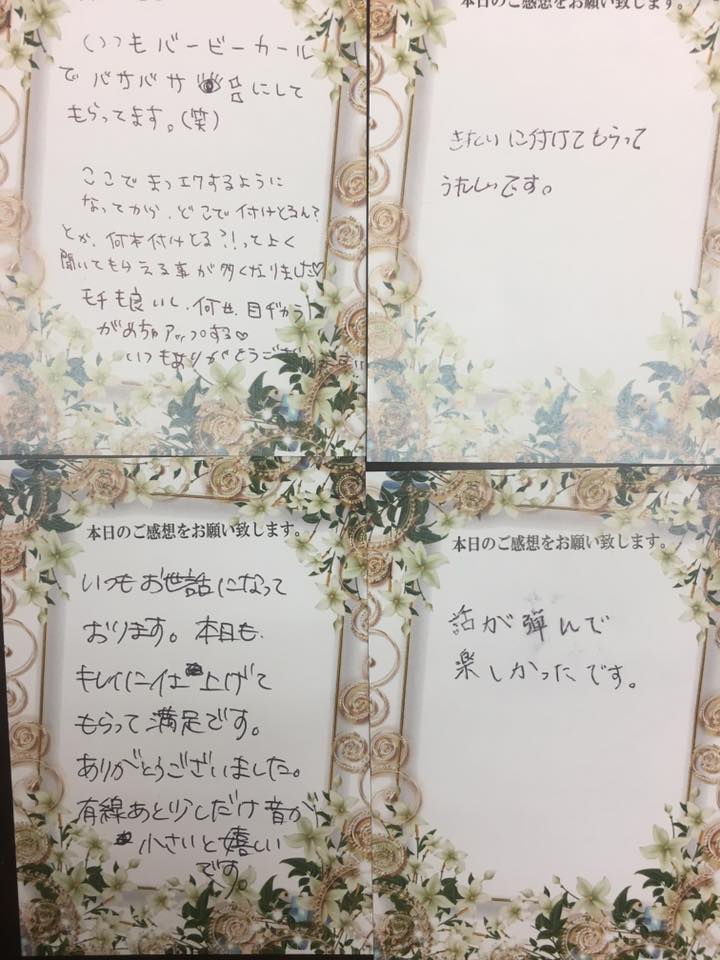 いつもバービーカール
でバサバサにして
もらってます。(笑)
ここでまつエクするように
なってから、どこで付けとるん?
とか、何本付けとる?!ってよく
聞いてもらえる事が多くなりました♡
モチも良いし、何せ、目ヂカラ
がめちゃアップする♡
いつもありがとうござ
本日のご感想をお願い致します。
きれいに付けてもらって
うれしいです。
本日のご感想をお願い致します。
いつもお世話になって
おります。本日も、
キレイに仕上げて
もらって満足です。
ありがとうございました。
有線あと少しだけ音が
小さいと嬉しい
です。
本日のご感想をお願い致します。
話が弾んで
楽しかったです。